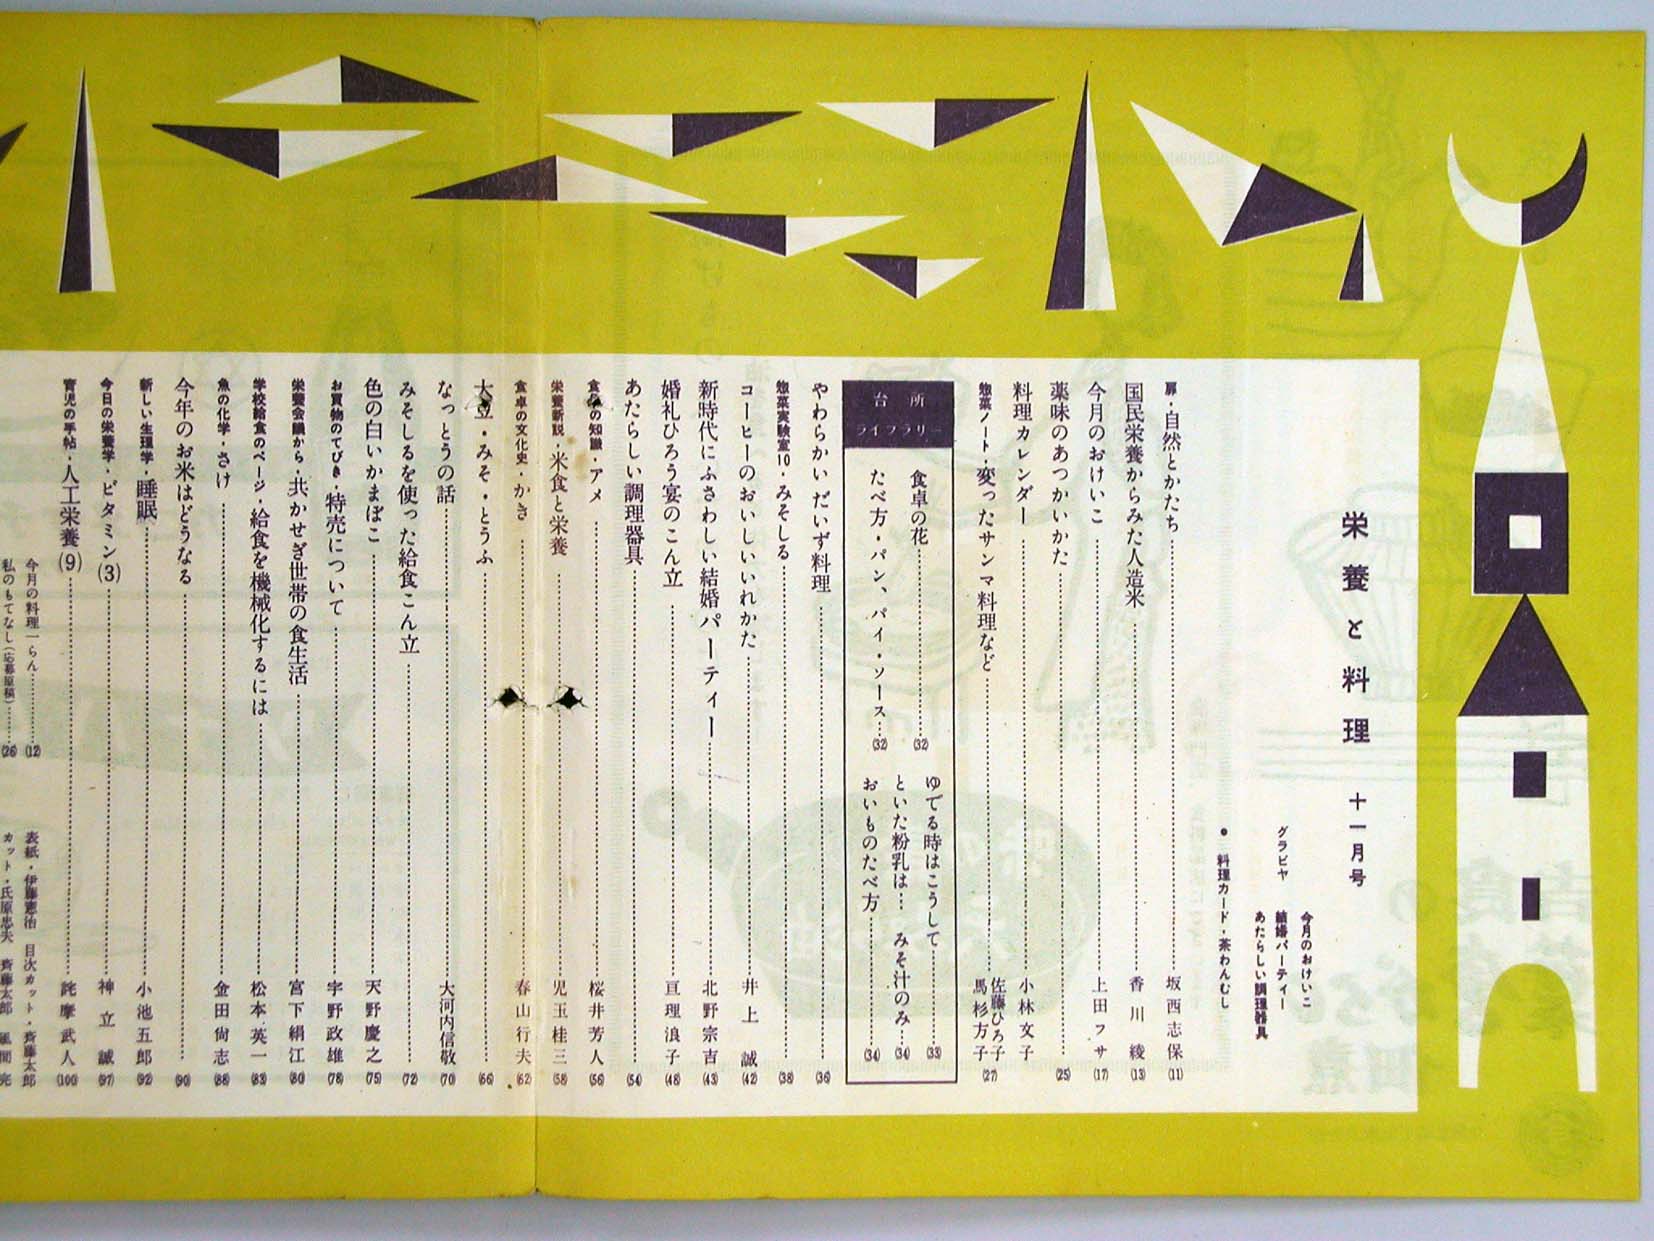 栄養と料理 十一月号
今月のおけいこ
グラビヤ 結婚パーティー
あたらしい調理器具
● 料理カード・茶わんむし
扉・自然とかたち 坂西志保 (11)
国民栄養からみた人造米 香川綾 (13)
今月のおけいこ 上田フサ (17)
薬味のあつかいかた (25)
料理カレンダー 小林文子
惣菜ノート・変ったサンマ料理など 佐藤ひろ子 馬杉方子 (27)
台所ライブラリー
食卓の花 (32)
たべ方・パン、パイ・ソース (32)
ゆでる時はこうして (33)
といた粉乳は… みそ汁のみ… (34)
おいものたべ方 (34)
やわらかいだいず料理 (36)
惣菜実験室10・みそしる (38)
コーヒーのおいしいいれかた 井上誠 (42)
新時代にふさわしい結婚パーティー 北野宗吉 (43)
婚礼ひろう宴のこん立 亘理浪子 (48)
あたらしい調理器具 (54)
の知識・アメ 桜井芳人 (56)
栄養新説・米食と栄養 児玉桂三 (58)
食卓の文化史・かき 春山行夫 (62)
大豆・みそ・とうふ (66)
なっとうの話 大河内信敬 (70)
みそしるを使った給食こん立 (72)
色の白いかまぼこ 天野慶之 (75)
お買物のてびき・特売について 宇野政雄 (78)
栄養会議から・共かせぎ世帯の食生活 宮下絹江 (80)
学校給食のページ・給食を機械化するには 松本英一 (83)
魚の化学・さけ 金田尚志 (88)
今年のお米はどうなる (90)
新しい生理学・睡眠 小池五郎 (92)
今日の栄養学・ビタミン(3) 神立誠 (97)
育児の手帖・人工栄養(9) 詫摩武人 (100)
今月の料理一らん (12)
私のもてなし(応募原稿) (26)
表紙・伊藤憲治 目次カット・斉藤太郎
カット・氏原忠夫 斉藤太郎 風間完